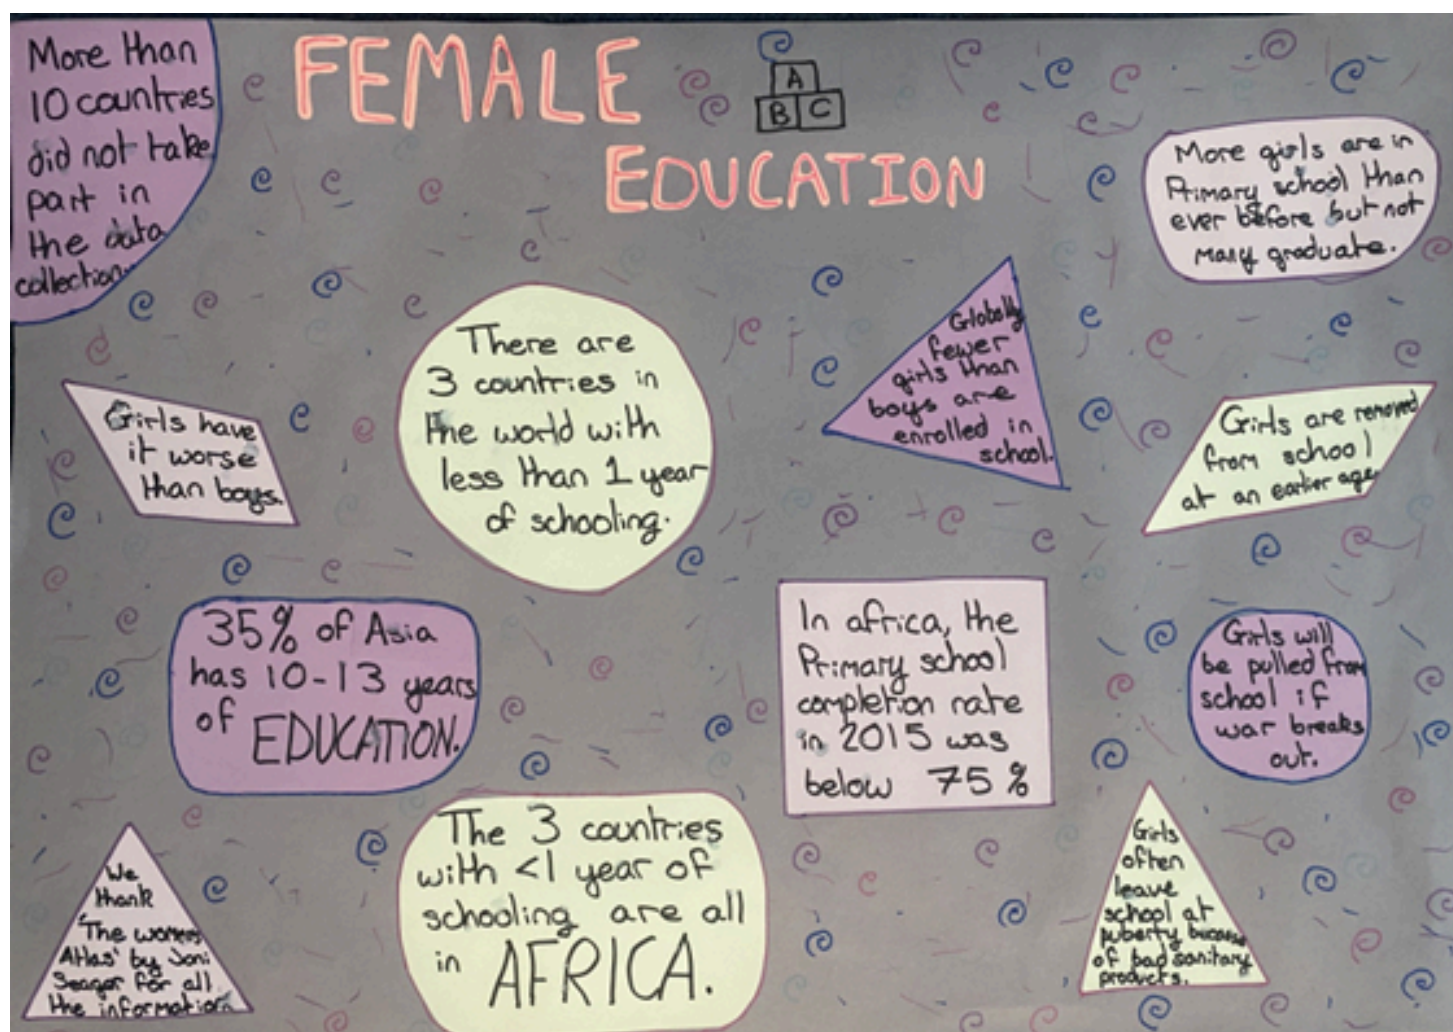 FEMALE
EDUCATION
A
B C
More than
10 countries
did not take
part in
the data
collection.
More girls are in
Primary school than
ever before but not
many graduate.
There are
3 countries in
the world with
less than 1 year
of schooling.
Globally
fewer
girls than
boys are
enrolled in
school.
Girls have
it worse
than boys.
Girls are removed
from school
at an earlier age
35% of Asia
has 10-13 years
of EDUCATION.
In africa, the
Primary school
completion rate
in 2015 was
below 75%
Girls will
be pulled from
school if
war breaks
out.
We
thank
'The womens
Atlas' by Joni
Seager for all
the information
The 3 countries
with <1 year of
schooling are all
in AFRICA.
Girls
often
leave
school at
puberty because
of bad sanitary
products.